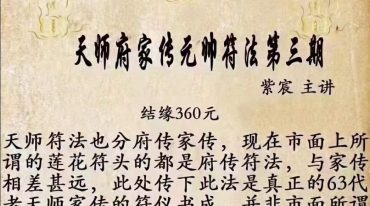 天师府家传元帅符法第三期
紫宸 主讲
结缘360元
天师符法也分府传家传，现在市面上所
谓的莲花符头的都是府传符法，与家传
相差甚远，此处传下此法是真正的63代
老天师家传的符仪书成，并非市面所谓